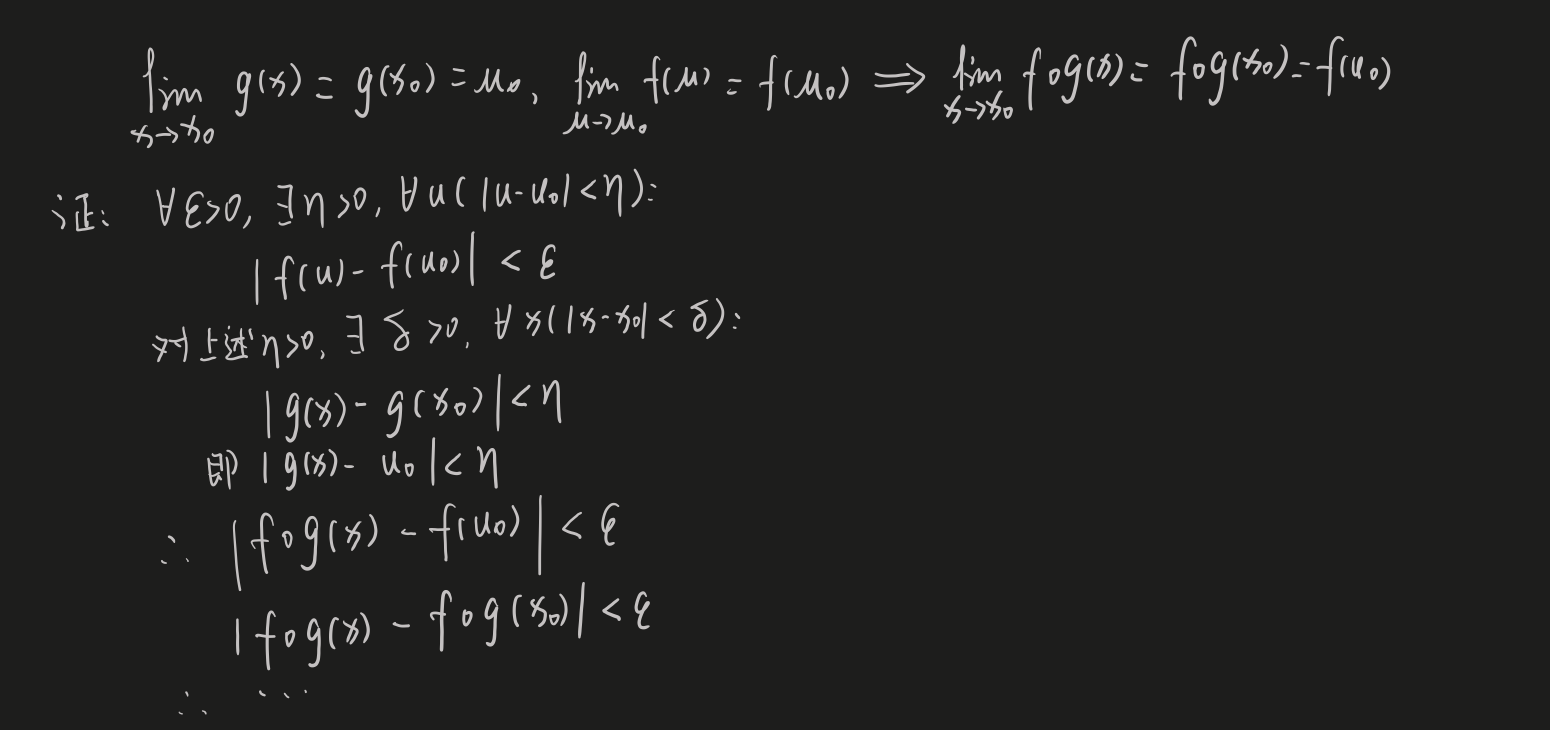 lim x→x₀ g(x) = g(x₀) = u₀, lim u→u₀ f(u) = f(u₀) ⟹ lim x→x₀ f∘g(x) = f∘g(x₀) = f(u₀)
证: ∀ε>0, ∃η>0, ∀u(|u-u₀|<η):
|f(u)-f(u₀)| < ε
对上述η>0, ∃δ>0, ∀x(|x-x₀|<δ):
|g(x)-g(x₀)|<η
即|g(x)-u₀|<η
∴ |f∘g(x)-f(u₀)|<ε
|f∘g(x)-f∘g(x₀)|<ε
∴ ...